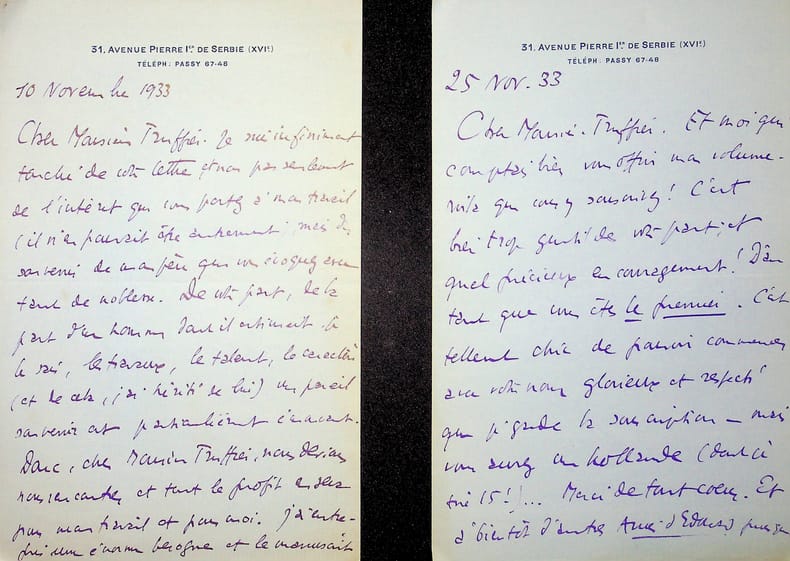 31, AVENUE PIERRE Iᴱᴿ DE SERBIE (XVIᵉ)
TÉLÉPH: PASSY 67-48
10 Novembre 1933
Cher Monsieur Truffier. Je suis infiniment
touché de votre lettre et non pas seulement
de l'intérêt que vous portez à mon travail
(il n'en pouvait être autrement) mais du
souvenir de mon père que vous évoquez avec
tant de noblesse. De votre part, de la
part d'un homme dont il estimait, je
le sais, les travaux, le talent, le caractère
(et de cela, j'ai hérité de lui) un pareil
souvenir est particulièrement émouvant.
Donc, cher Monsieur Truffier, nous devions
nous rencontrer et tout le profit en sera
pour mon travail et pour moi. J'ai entre-
pris une énorme besogne et le manuscrit
31, AVENUE PIERRE Iᴱᴿ DE SERBIE (XVIᵉ)
TÉLÉPH: PASSY 67-48
25 Nov. 33
Cher Monsieur Truffier. Et moi qui
comptais bien vous offrir mon volume -
voilà que vous y souscrivez! C'est
bien trop gentil de votre part, et
quel précieux encouragement! D'au-
tant que vous êtes le premier. C'est
tellement chic de pouvoir commencer
avec votre nom glorieux et respecté
que je garde la souscription - mais
vous aurez un hollande (dont il a
tiré 15!)... Merci de tout coeur. Et
à bientôt d'autres Amis d'Edouard